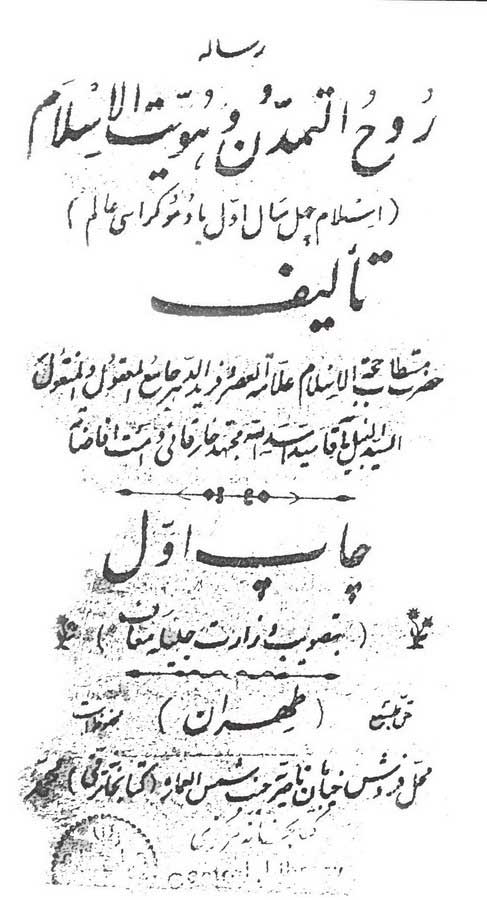 رساله
رُوحُ التمدّن وَ هُویّت الاِسْلام
(اسلام چهل سال اوّل یا دموکراسی عالم)
تألیف
حضرت مستطاب حجة الاسلام علّامة العصر و فرید الدهر جامع المعقول و المنقول
السید النبیل آقا سید اسد الله مجتهد خارقانی دامت افاضاته
چاپ اوّل
(بتصویب وزارت جلیله معارف)
حق طبع (طهران) محفوظ است
محل فروش خیابان ناصریه جنب شمس العماره (کتابخانه ترقی)
کتابخانه مرکزی
Central Library